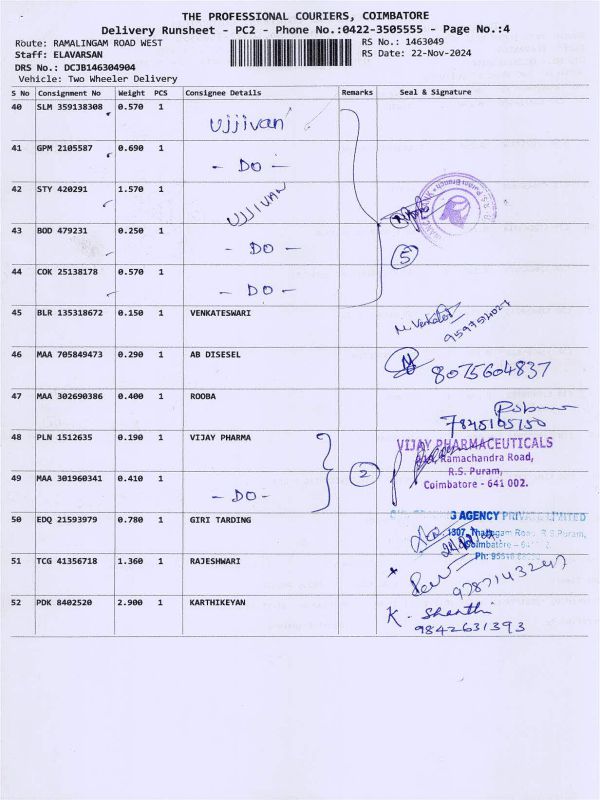 THE PROFESSIONAL COURIERS, COIMBATORE
Delivery Runsheet - PC2 - Phone No.:0422-3505555 - Page No.:4
Route: RAMALINGAM ROAD WEST
RS No.: 1463049
Staff: ELAVARSAN
RS Date: 22-Nov-2024
DRS No.: DCJB146304904
Vehicle: Two Wheeler Delivery
S No Consignment No Weight PCS Consignee Details Remarks Seal & Signature
40 SLM 359138308 0.570 1 Ujjivan
41 GPM 2105587 0.690 1 - DO -
42 STY 420291 1.570 1 UJJIVAN
43 BOD 479231 0.250 1 - DO - 5
44 COK 25138178 0.570 1 - DO -
45 BLR 135318672 0.150 1 VENKATESWARI
46 MAA 705849473 0.290 1 AB DISESEL 8075604837
47 MAA 302690386 0.400 1 ROOBA
7845105150
48 PLN 1512635 0.190 1 VIJAY PHARMA VIJAY PHARMACEUTICALS
Ramachandra Road,
49 MAA 301960341 0.410 1 - DO - 2 R.S. Puram,
Coimbatore - 641 002.
50 EDQ 21593979 0.780 1 GIRI TARDING AGENCY PRIVATE LIMITED
R.S.Puram,
Coimbatore
Ph:
51 TCG 41356718 1.360 1 RAJESHWARI
52 PDK 8402520 2.900 1 KARTHIKEYAN K. Shanthi
9842631393